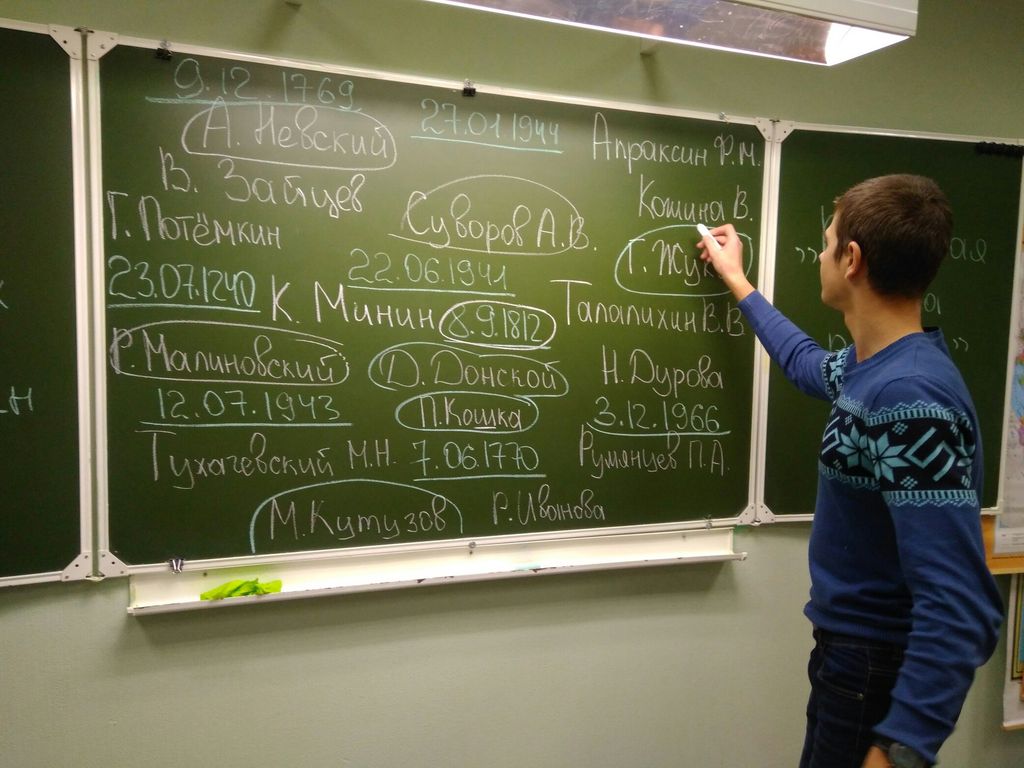 9.12.1769
А. Невский
27.01.1944
Апраксин Ф.М.
В. Зайцев
Суворов А.В.
Кошина В.
Г. Потёмкин
Г. Жук
23.07.1240
22.06.1941
К. Минин
8.9.1812
Талалихин В.В
Р. Малиновский
Д. Донской
Н. Дурова
12.07.1943
П. Кошка
3.12.1966
Тухачевский М.Н.
7.06.1770
Румянцев П.А.
М. Кутузов
Р. Иванова